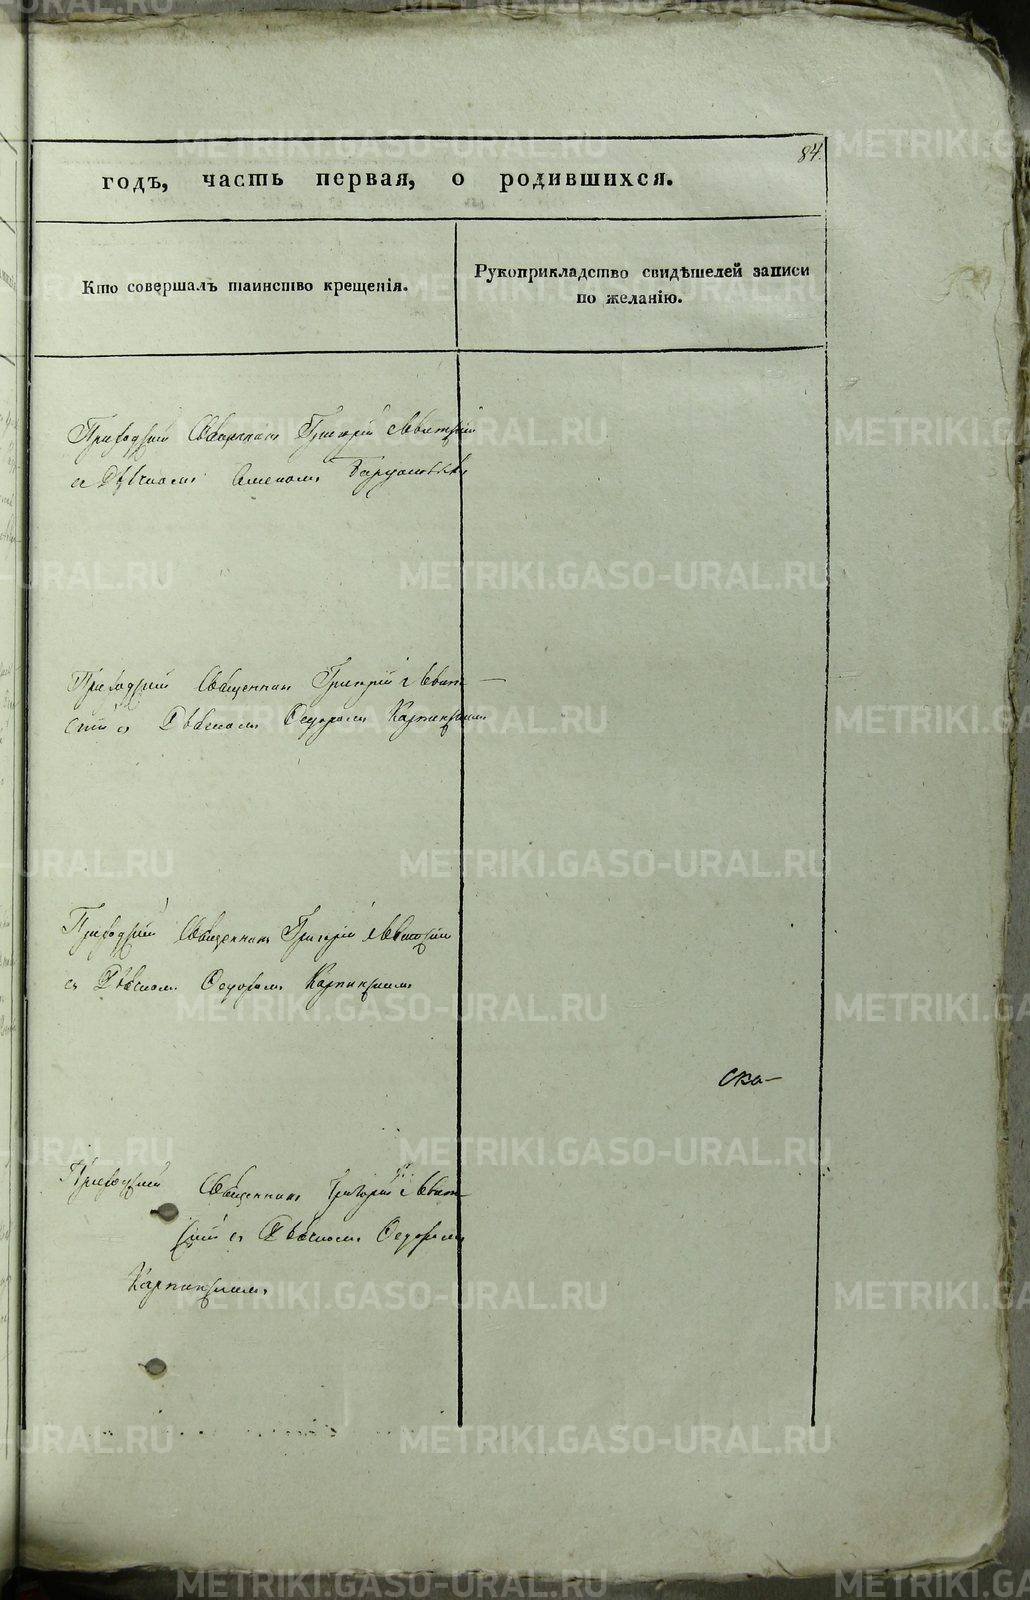 84.
годъ, часть первая, о родившихся.
Кто совершалъ таинство крещенія.
Рукоприкладство свидѣтелей записи
по желанію.
Приходскій Священникъ Григорій
съ Дьячкомъ
Приходскій Священникъ Григорій
съ Дьячкомъ Ѳедоромъ Карпинскимъ
Приходскій Священникъ Григорій
съ Дьячкомъ Ѳедоромъ Карпинскимъ
Ска-
Приходскій Священникъ Григорій
съ Дьячкомъ Ѳедоромъ
Карпинскимъ
METRIKI.GASO-URAL.RU